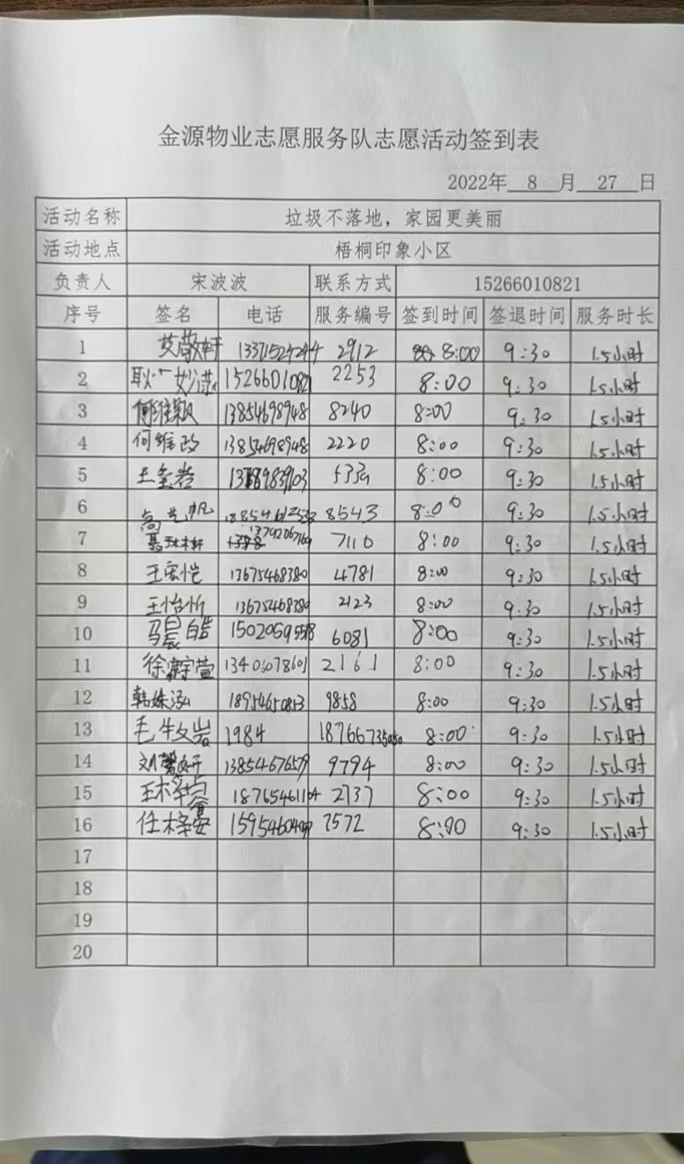 金源物业志愿服务队志愿活动签到表
2022年 8 月 27 日
活动名称 垃圾不落地，家园更美丽
活动地点 梧桐印象小区
负责人 宋波波 联系方式 15266010821
序号 签名 电话 服务编号 签到时间 签退时间 服务时长
1 艾敬轩 2912 8:00 9:30 1.5小时
2 2253 8:00 9:30 1.5小时
3 何维颖 13854698948 8240 8:00 9:30 1.5小时
4 何维政 13854698948 2220 8:00 9:30 1.5小时
5 8:00 9:30 1.5小时
6 高艺帆 8543 8:00 9:30 1.5小时
7 7110 8:00 9:30 1.5小时
8 王宏恺 13675468380 4781 8:00 9:30 1.5小时
9 王怡忻 13675468380 2123 8:00 9:30 1.5小时
10 15020595518 6081 8:00 9:30 1.5小时
11 13406078601 2161 8:00 9:30 1.5小时
12 韩姝泓 18954650813 9858 8:00 9:30 1.5小时
13 1984 8:00 9:30 1.5小时
14 刘馨妍 13854676579 9794 8:00 9:30 1.5小时
15 18765461104 2737 8:00 9:30 1.5小时
16 任梓安 7572 8:00 9:30 1.5小时
17
18
19
20